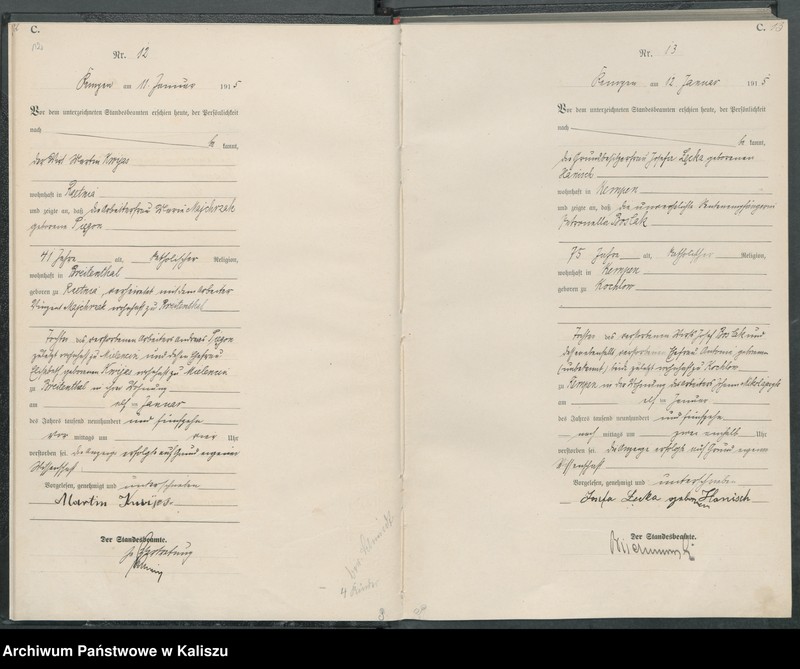 C.
Nr. 12
Kempen am 11 Januar 1915
Vor dem unterzeichneten Standesbeamten erschien heute, der Persönlichkeit
nach
be kannt,
der Wirt Martin Kwijas
wohnhaft in
und zeigte an, daß die Arbeiterfrau Maria Majchrzak
geborene
41 Jahre alt, katholischer Religion,
wohnhaft in Breitenthal
geboren zu verheiratet mit dem Arbeiter
Majchrzak wohnhaft zu Breitenthal
Tochter des verstorbenen Arbeiters Andreas
zuletzt wohnhaft zu und dessen Ehefrau
Elisabeth geborenen Kwijas wohnhaft zu
zu Breitenthal in ihrer Wohnung
am elften Januar
des Jahres tausend neunhundert und fünfzehn
vor mittags um vier Uhr
verstorben sei. Die Anzeige erfolgte auf Grund eigener
Wissenschaft
Vorgelesen, genehmigt und unterschrieben
Martin Kwijas
Der Standesbeamte.
In Vertretung
C. 13
Nr. 13
Kempen am 12 Januar 1915
Vor dem unterzeichneten Standesbeamten erschien heute, der Persönlichkeit
nach
be kannt,
die Grundbesitzerfrau Josefa Lęcka geborenen
Hanisch
wohnhaft in Kempen
und zeigte an, daß die unverehelichte Rentenempfängerin
Petronella Boslak
75 Jahre alt, katholischer Religion,
wohnhaft in Kempen
geboren zu Kochlow
Tochter des verstorbenen Wirts Josef Boslak und
dessen ebenfalls verstorbenen Ehefrau Antonie geborenen
(unbekannt) beide zuletzt wohnhaft zu Kochlow
zu Kempen in der Wohnung des Arbeiters Johann
am elften Januar
des Jahres tausend neunhundert und fünfzehn
nach mittags um zwei einhalb Uhr
verstorben sei. Die Anzeige erfolgte auf Grund eigener
Wissenschaft
Vorgelesen, genehmigt und unterschrieben
Josefa Lęcka geborenen Hanisch
Der Standesbeamte.
Archiwum Państwowe w Kaliszu